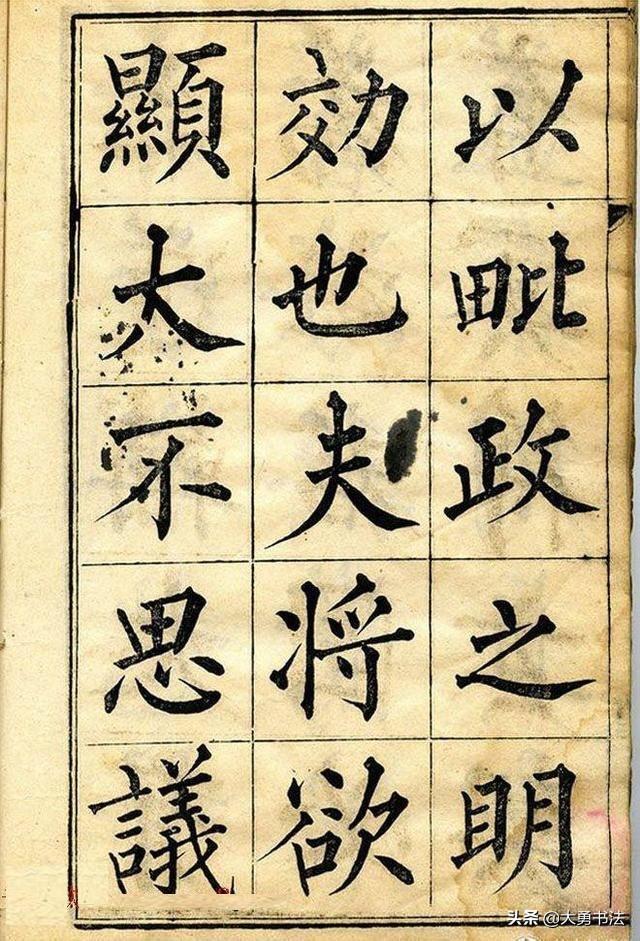 以毗政之明
効也夫将欲
顯大不思議
头条 @大勇书法